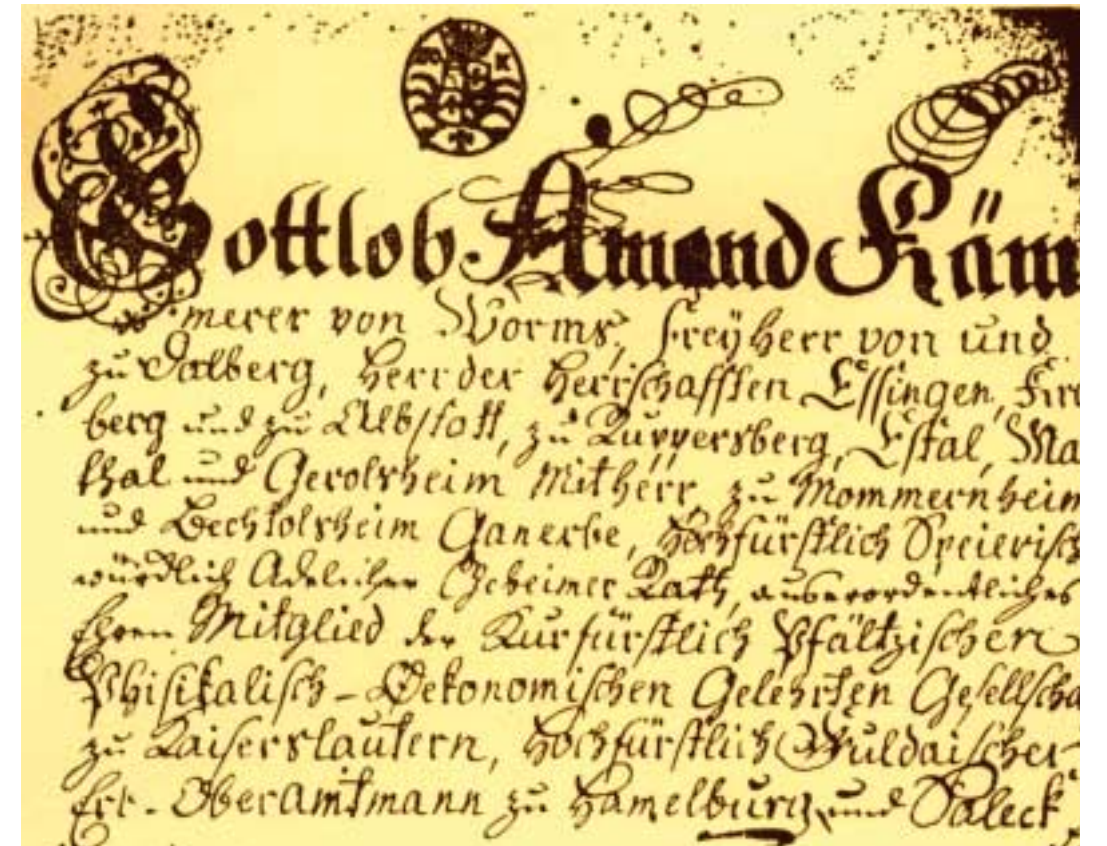 Gottlob Amand Käm
merer von Worms, Freyherr von und
zu Dalberg, Herr der Herrschafften Essingen, Kro
berg und zu Albstatt, zu Ruppersberg, Estal, Ma
thal und Gerolsheim Mitherr, zu Mommernheim
und Bechtolsheim Ganerbe, Hochfürstlich Speierisch
würdlich Adelicher Geheimer Rath, auserordentliches
Ehren Mitglied der Kurfürstlich Pfältzischen
Phisikalisch-Oekonomischen Gelehrten Gesellscha
zu Kaiserslautern, Hochfürstlich Fuldaischer
Oberamtmann zu Hamelburg und Saleck